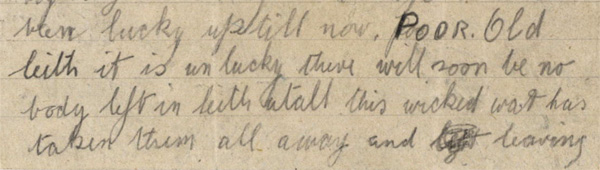 been lucky up till now. POOR. Old
leith it is un lucky there will soon be no
body left in leith atall this wicked wat has
taken them all away and leaving